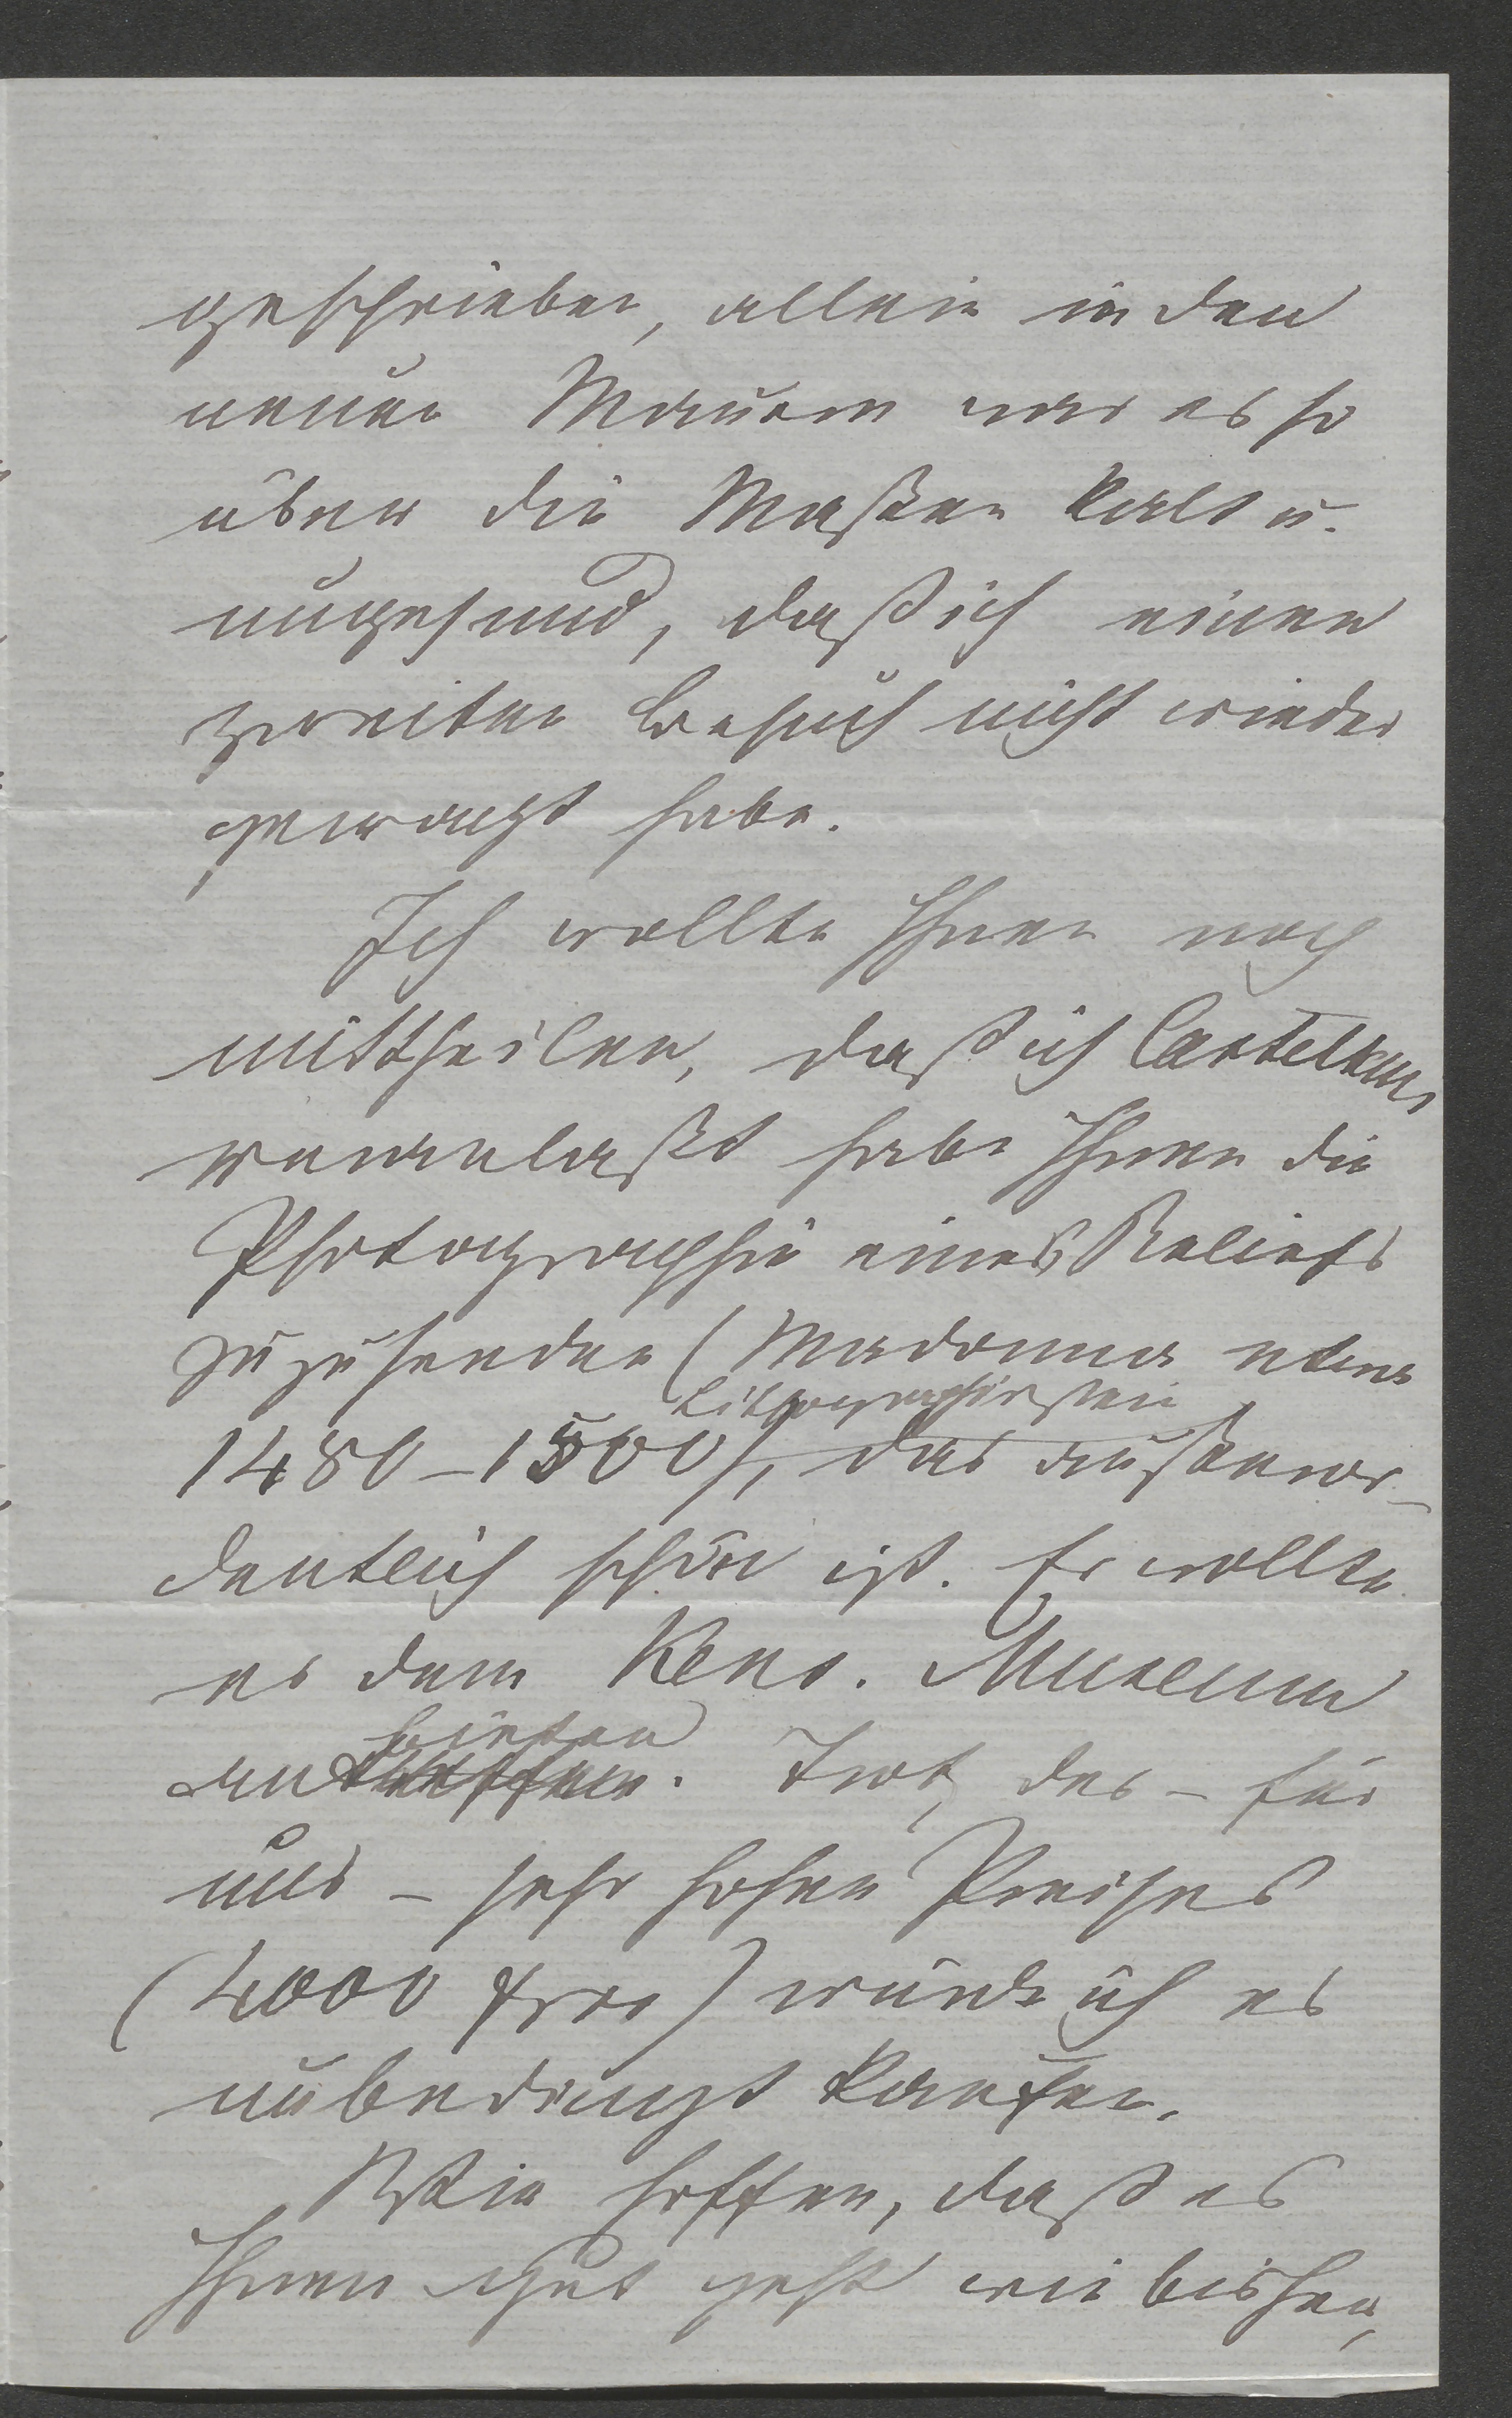 geschrieben, allein in den
neuen Mauern war es so
über die Maßen kalt u.
ungesund, daß ich einen
zweiten Besuch nicht wieder
gewagt habe.
Ich wollte Ihnen noch
mittheilen, daß ich
veranlaßt habe Ihnen die
Photographie eines Reliefs
zuzusenden (Madonna etwa
Lithographirstein
1480-1500), das außeror-
dentlich schön ist. Er wollte
es dem Kens. Museum
bieten
an. Trotz des - für
uns - sehr hohen Preises
(4000 frcs) würde ich es
unbedingt kaufen.
Wir hoffen, daß es
Ihnen gut geht wie bisher,